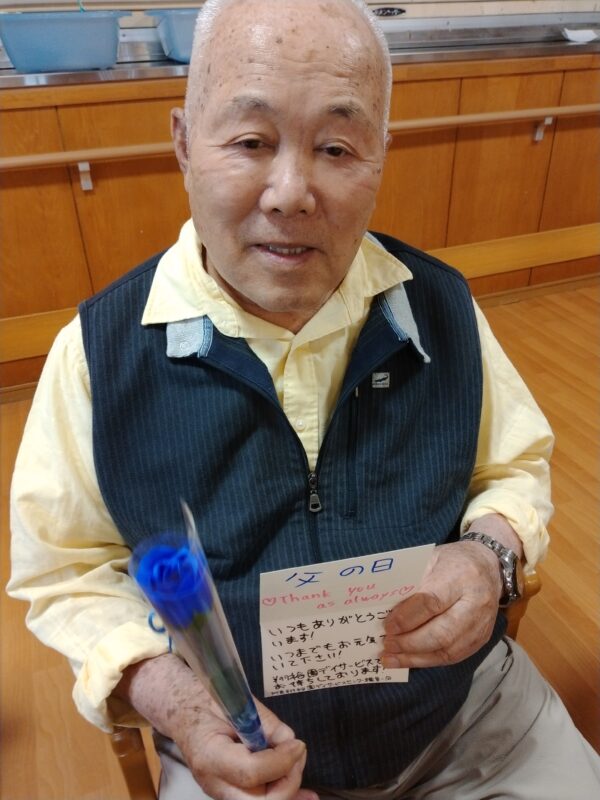 父の日
♡Thank you
as always♡
いつもありがとうご
います!
いつまでもお元気で
いて下さい!
園デイサービスで
お待ちしております!